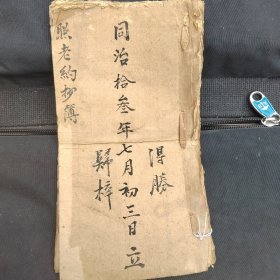 得勝
同治拾叁年七月初三日立
照老約抄簿